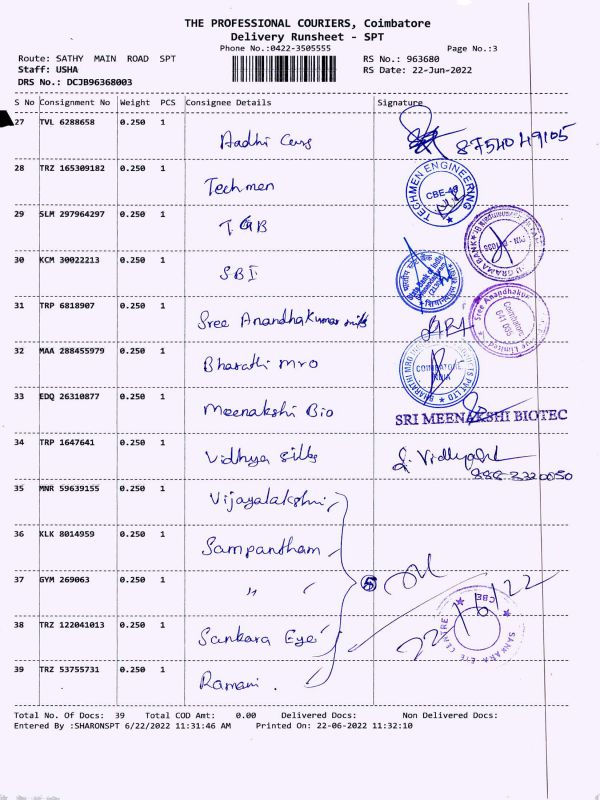 THE PROFESSIONAL COURIERS, Coimbatore
Delivery Runsheet - SPT
Phone No.:0422-3505555 Page No.:3
Route: SATHY MAIN ROAD SPT RS No.: 963680
Staff: USHA RS Date: 22-Jun-2022
DRS No.: DCJB96368003
S No Consignment No Weight PCS Consignee Details Signature
27 TVL 6288658 0.250 1 Aadhi Cars 8754049105
28 TRZ 165309182 0.250 1 Techmen TECHMEN ENGINEERING CBE-49
29 SLM 297964297 0.250 1 TGB GRAMA BANK
30 KCM 30022213 0.250 1 SBI State Bank of India
31 TRP 6818907 0.250 1 Sree Anandhakumar mills Sree Anandhakumar Coimbatore 641 035 Limited
32 MAA 288455979 0.250 1 Bharathi mro BHARATHI MRO PVT LTD COIMBATORE INDIA
33 EDQ 26310877 0.250 1 Meenakshi Bio SRI MEENAKSHI BIOTEC
34 TRP 1647641 0.250 1 Vidhya silks
35 MNR 59639155 0.250 1 Vijayalakshmi
36 KLK 8014959 0.250 1 Sampantham
37 GYM 269063 0.250 1 " " 5
38 TRZ 122041013 0.250 1 Sankara Eye 22/6/22 SANKARA EYE CENTRE CBE
39 TRZ 53755731 0.250 1 Ramani.
Total No. Of Docs: 39 Total COD Amt: 0.00 Delivered Docs: Non Delivered Docs:
Entered By :SHARONSPT 6/22/2022 11:31:46 AM Printed On: 22-06-2022 11:32:10